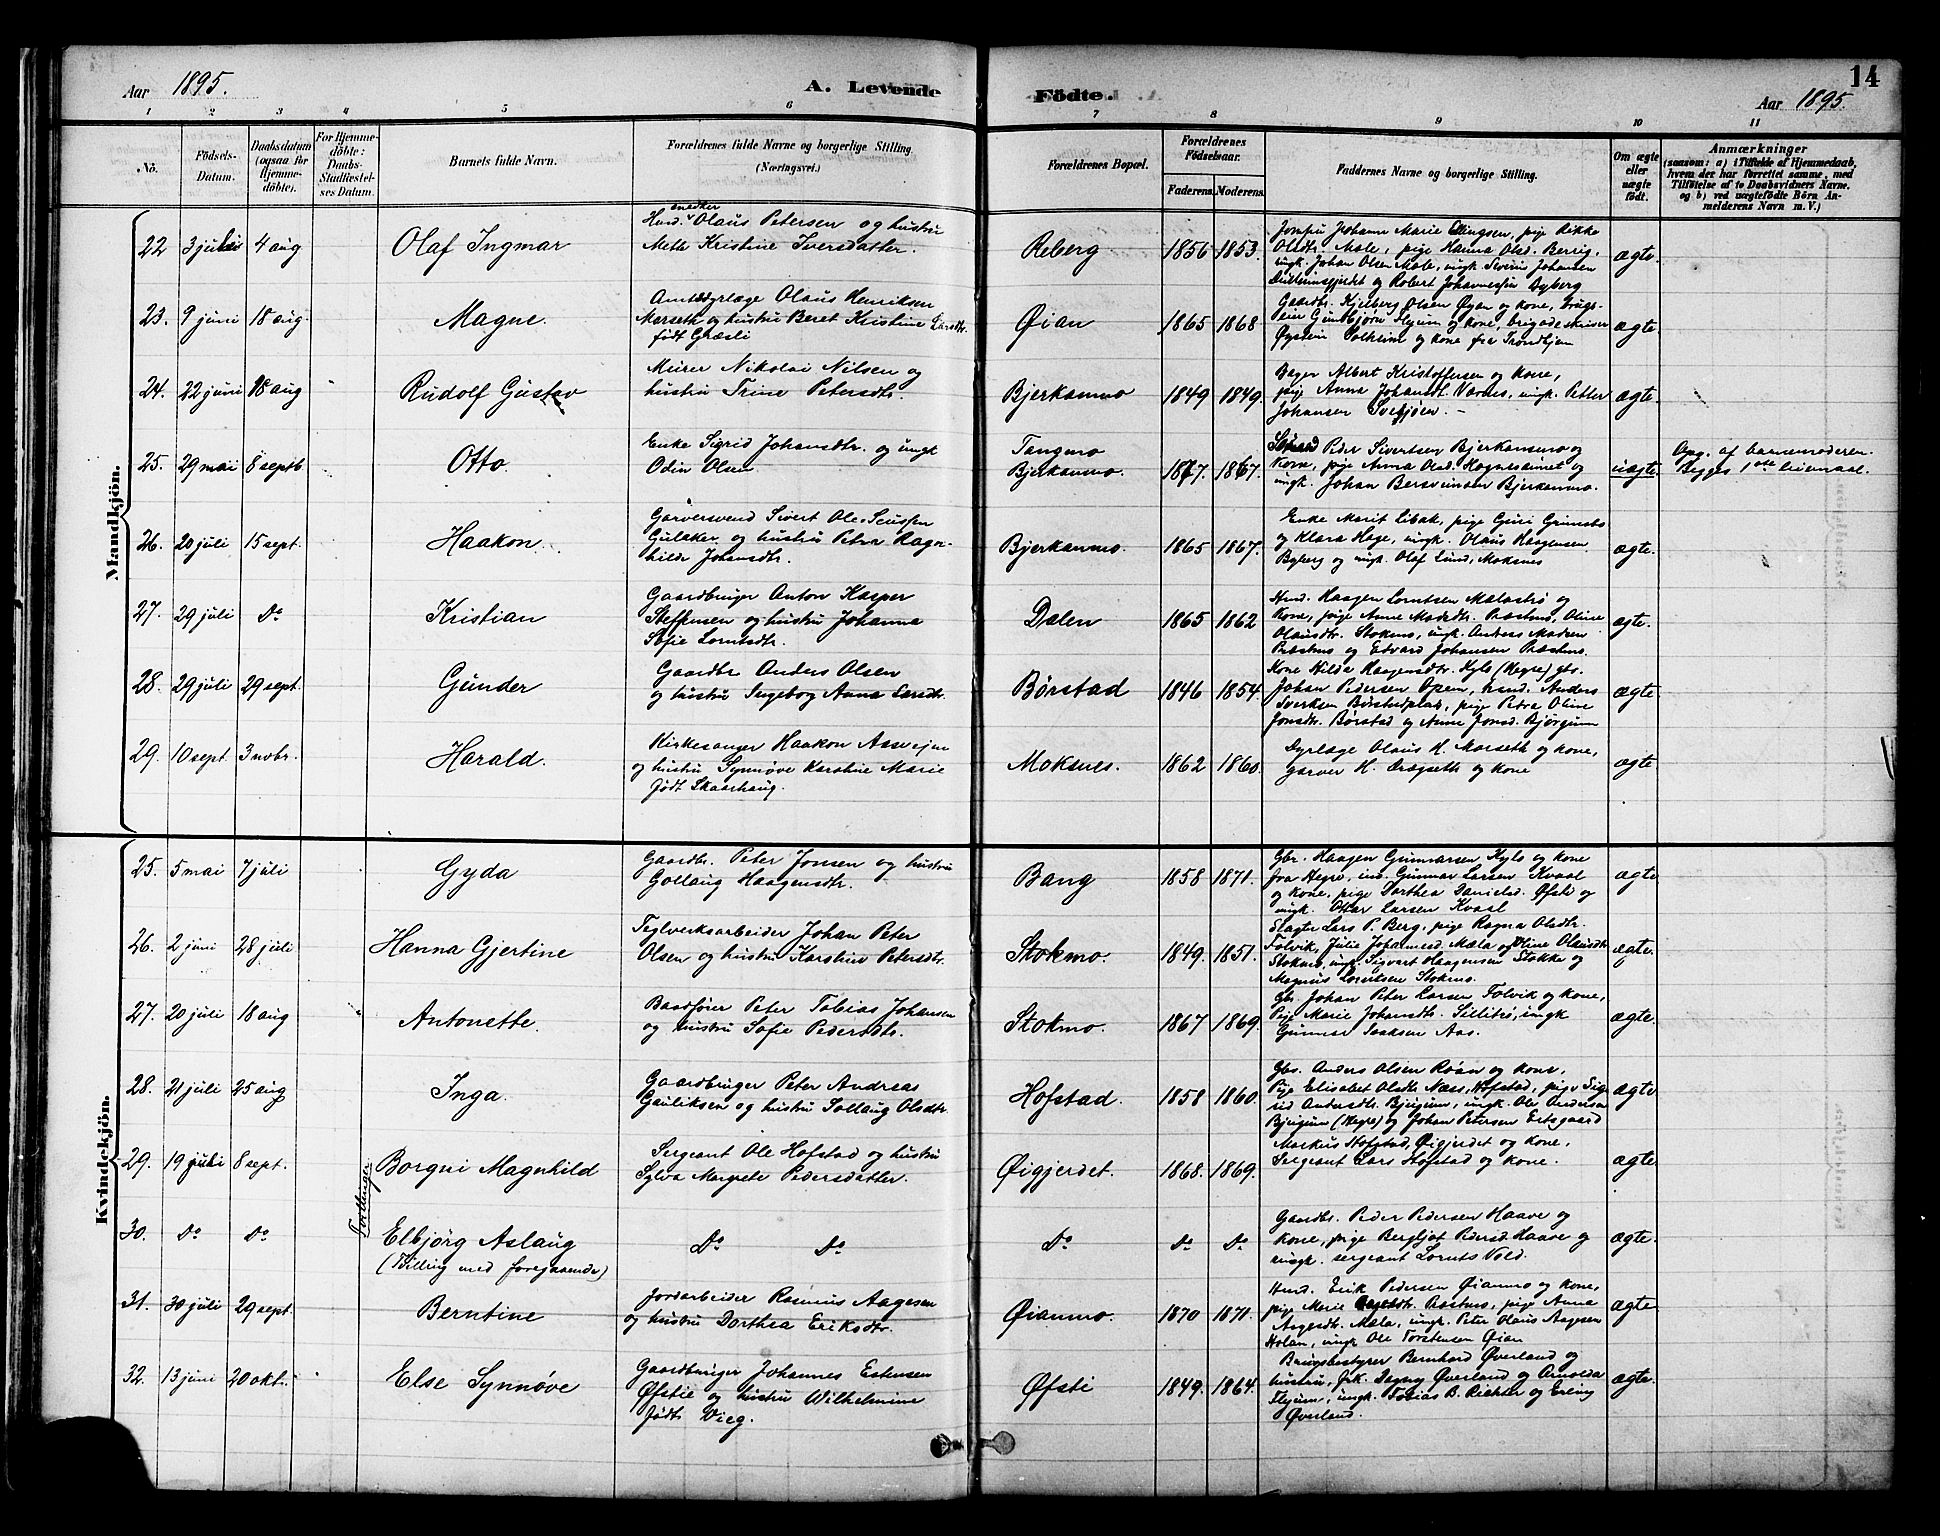 Aar 1895.
A. Levende Födte.
Aar 1895.
14
1 2 3 4 5 6 7 8 9 10 11
No.
Födsels-Datum.
Daabsdatum (ogsaa for Hjemme-döbte).
For Hjemme-döbte: Daabs-Stadfæstel-ses Datum.
Barnets fulde Navn.
Forældrenes fulde Navne og borgerlige Stilling (Næringsvei.)
Forældrenes Bopæl.
Forældrenes Födselsaar.
Faderens. Moderens.
Faddernes Navne og borgerlige Stilling.
Om ægte eller uægte födt.
Anmærkninger
(saasom: a) i Tilfælde af Hjemmedaab, hvem der har forrettet samme, med Tilföielse af to Daabsvidners Navne, og b) ved uægtefödte Börn An-melderens Navn m. V.)
Mandkjön.
22 3 juli 4 aug
Olaf Ingmar
Hmd. snedker Olaus Petersen og hustru
Mette Kristine Iversdatter.
Reberg
1856 1853.
Olsdtr. Mole, pige Hanna Olsd. Berrig,
ungk. Johan Olsen Mole, ungk. Severin Johansen
ægte.
23. 9 juni 18 aug.
Magne.
Amtsdyrlæge Olaus Henriksen
Morseth og hustru Beret Kristine Larsdtr.
født Græsli
Øian
1865 1868
Gaardbr. Kjelberg Olsen Øyan og kone,
Gunbjørn Flejum og kone, brigadeskriver
Øystein Solheim og kone fra Trondhjem
ægte.
24. 22 juni 18 aug
Rudolf Gustav
Murer Nikolai Nilsen og
hustru Trine Petersdtr.
Bjerkanmo
1849 1849.
Bager Albert Kristoffersen og kone,
pige Anna Johansdtr. Varnes, ungk. Petter
Johansen
ægte.
25. 29 mai 8 septb.
Otto.
Enke Sigrid Johansdtr. og ungk
Odin Olsen.
Tangmo
Bjerkanmo.
1867. 1867.
Peder Sivertsen Bjerkansmo og
kone, pige Anna Olsd. Hognesaunet og
ungk. Johan Bersvendsen Bjerkanmo.
uægte.
Opg. af barnemoderen.
Begges 1ste leiermaal.
26. 20 juli 15 sept.
Haakon.
Garversvend Sivert Ole-Seussen
Gulaker og hustru Petra Ragn-
hilda Johansdtr.
Bjerkanmo.
1865 1867.
Enke Marit Libak, pige Guri
og Klara Hage, ungk. Olaus Haagensen
Byberg og ungk. Olaf Lund, Moksnes
ægte.
27. 29 juli Do
Kristian
Gaardbruger Anton Kasper
Steffensen og hustru Johanna
Sofie Lorntsdtr.
Dalen
1865 1862
Hmd. Haagen Lorntsen Malastrø og
kone, pige Anne Madsdtr. Præstmo, Oline
Olausdtr. Stokmo, ungk. Andreas Madsen
Præstmo og Edvard Johansen Præstmo.
ægte.
28. 29 juli 29 sept.
Gunder
Gaardbr Anders Olsen
og hustru Ingebog Anna Larsdtr.
Børstad
1846 1854.
Kone Hilda Haagensdtr. Kylo (Hegre) gbr.
Johan Pedersen Open, hmd. Anders
Iversen Børstadplas, pige Petra Oline
Jonsdtr. Børstad og Anne Jonsd. Bjørgum
ægte.
29. 10 sept 3 novbr.
Harald.
Kirkesanger Haakon Aasvejen
og hustru Synnøve Karoline Marie
født Skaarhaug.
Moksnes.
1862 1860.
Dyrlæge Olaus H. Morseth og kone,
garver H. Drægseth og kone
ægte.
Kvindekjön.
25. 5 mai 7 juli
Gyda
Gaardbr. Peter Jonsen og hustru
Gollaug Haagensdtr.
Bang
1858 1871.
Gbr. Haagen Gunnarsen Kylo og kone
fra Hegre, Gunnar Larsen Kvaal
og kone, pige Dorthea Danielsd. Øfsti og
ungk. Ottar Larsen Kvaal
ægte.
26. 2 juni 28 juli
Hanna Gjertine
Teglverksarbeider Johan Peter
Olsen og hustru Karstine Petersdtr.
Stokmo.
1849. 1851.
Slagter Lars P. Berg, pige Ragna Olsdtr.
Folvik, Julie Johannesd. Mæla og Oline Olausdtr
Stokmo, ungk. Sigvart Haagensen Stokke og
Magnus Lorntsen Stokmo.
ægte.
27. 20 juli 18 aug
Antonette.
Baadfører Peter Tobias Johansen
og hustru Sofie Pedersdtr.
Stokmo.
1867 1869.
Gbr. Johan Peter Larsen Folvik og kone,
Pige Marie Johansdtr. ungk
Gunnar Isaksen Aas.
ægte.
28. 21 juli 25 aug
Inga.
Gaardbruger Peter Andreas
Gauliksen og hustru Sollaug Olsdtr.
Hofstad.
1858 1860.
Gbr. Anders Olsen Roan og kone,
Pige Elisabet Olsdtr. Næss, Hofstad, pige Sig-
rid Andersdtr. Bjergum, ungk. Ole Andersen
Bjergum (Hegre) og Johan Petersen Eidsgaard
ægte
29. 19 juli 8 sept.
Tvillinger
Borgni Magnhild
Sergeant Ole Hofstad og hustru
Sylva Margrete Pedersdatter.
Øigjerdet.
1868. 1869.
Markus Hofstad, Øigjerdet og kone.
Sergeant Lars Hofstad og kone.
ægte.
30. Do Do
Elbjørg Aslaug
(Tvilling med foregaaende)
Do Do
Do
Do Do
Gaardbr. Peder Pedersen Haave og
kone, pige Bergljot Pedersd. Haave og
ungk. sergeant Lornts Vold.
ægte.
31. 30 juli 29 sept.
Berntine
Jordarbeider Rasmus Aagesen
og hustru Dorthea Eriksdtr.
Øianmo.
1870 1871.
Hmd. Erik Pedersen Øianmo og kone,
pige Marie Aagesdtr. Præstmo, pige Anna
Aagesdtr. Mæla, ungk. Peter Olaus Aagesen
Holan, ungk Ole Torstensen Øian
ægte
32. 13 juni 20 okt.
Else Synnøve
Gaardbruger Johannes Estensen
Øfstie og hustru Wilhelmine
født Vieg.
Øfsti
1849. 1864.
Brugsbestyrer Bernhard Øverland og
hustru, frk. Dagny Øverland og Arnolda
Flejum, ungk. Tobias B. Richter og Erling
Øverland.
ægte.